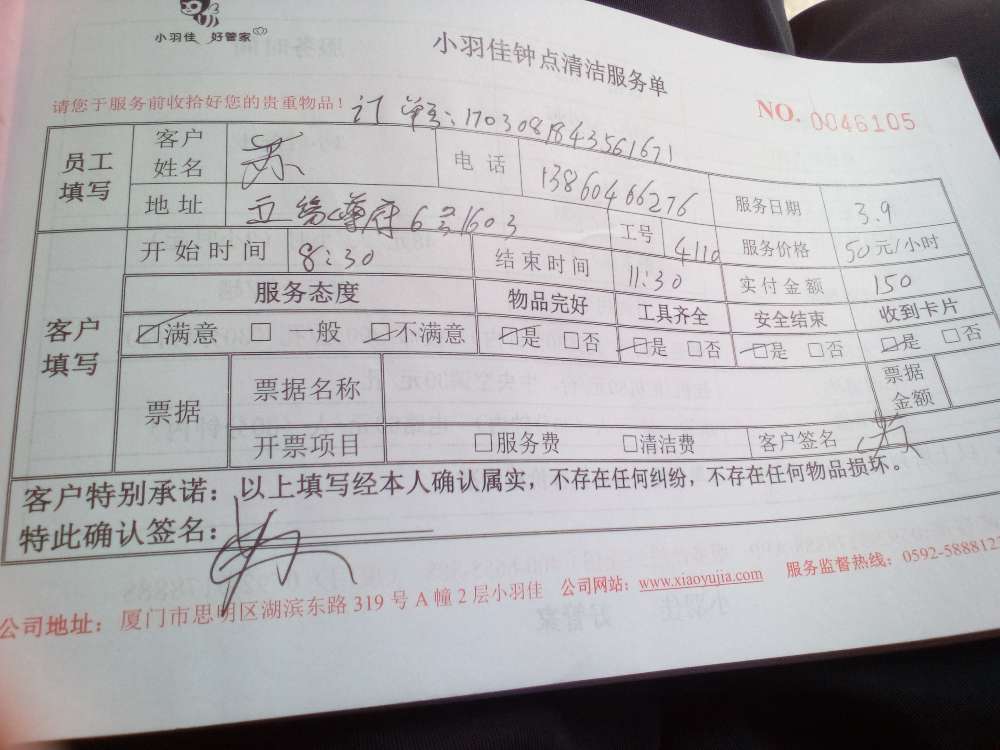 小羽佳 好管家
小羽佳钟点清洁服务单
请您于服务前收拾好您的贵重物品！ 订单号:1703081843561671 NO. 0046105
员工填写 客户姓名 苏 电话 13860466276 服务日期 3.9
地址 五缘尊府6号1603 工号 4110 服务价格 50元/小时
客户填写 开始时间 8:30 结束时间 11:30 实付金额 150
服务态度 物品完好 工具齐全 安全结束 收到卡片
☑满意 □ 一般 □不满意 ☑是 □否 ☑是 □否 ☑是 □否 ☑是 □否
票据 票据名称 票据金额
开票项目 □服务费 □清洁费 客户签名
客户特别承诺：以上填写经本人确认属实，不存在任何纠纷，不存在任何物品损坏。
特此确认签名：
公司地址：厦门市思明区湖滨东路 319 号 A 幢 2 层小羽佳 公司网站：www.xiaoyujia.com 服务监督热线：0592-5888123